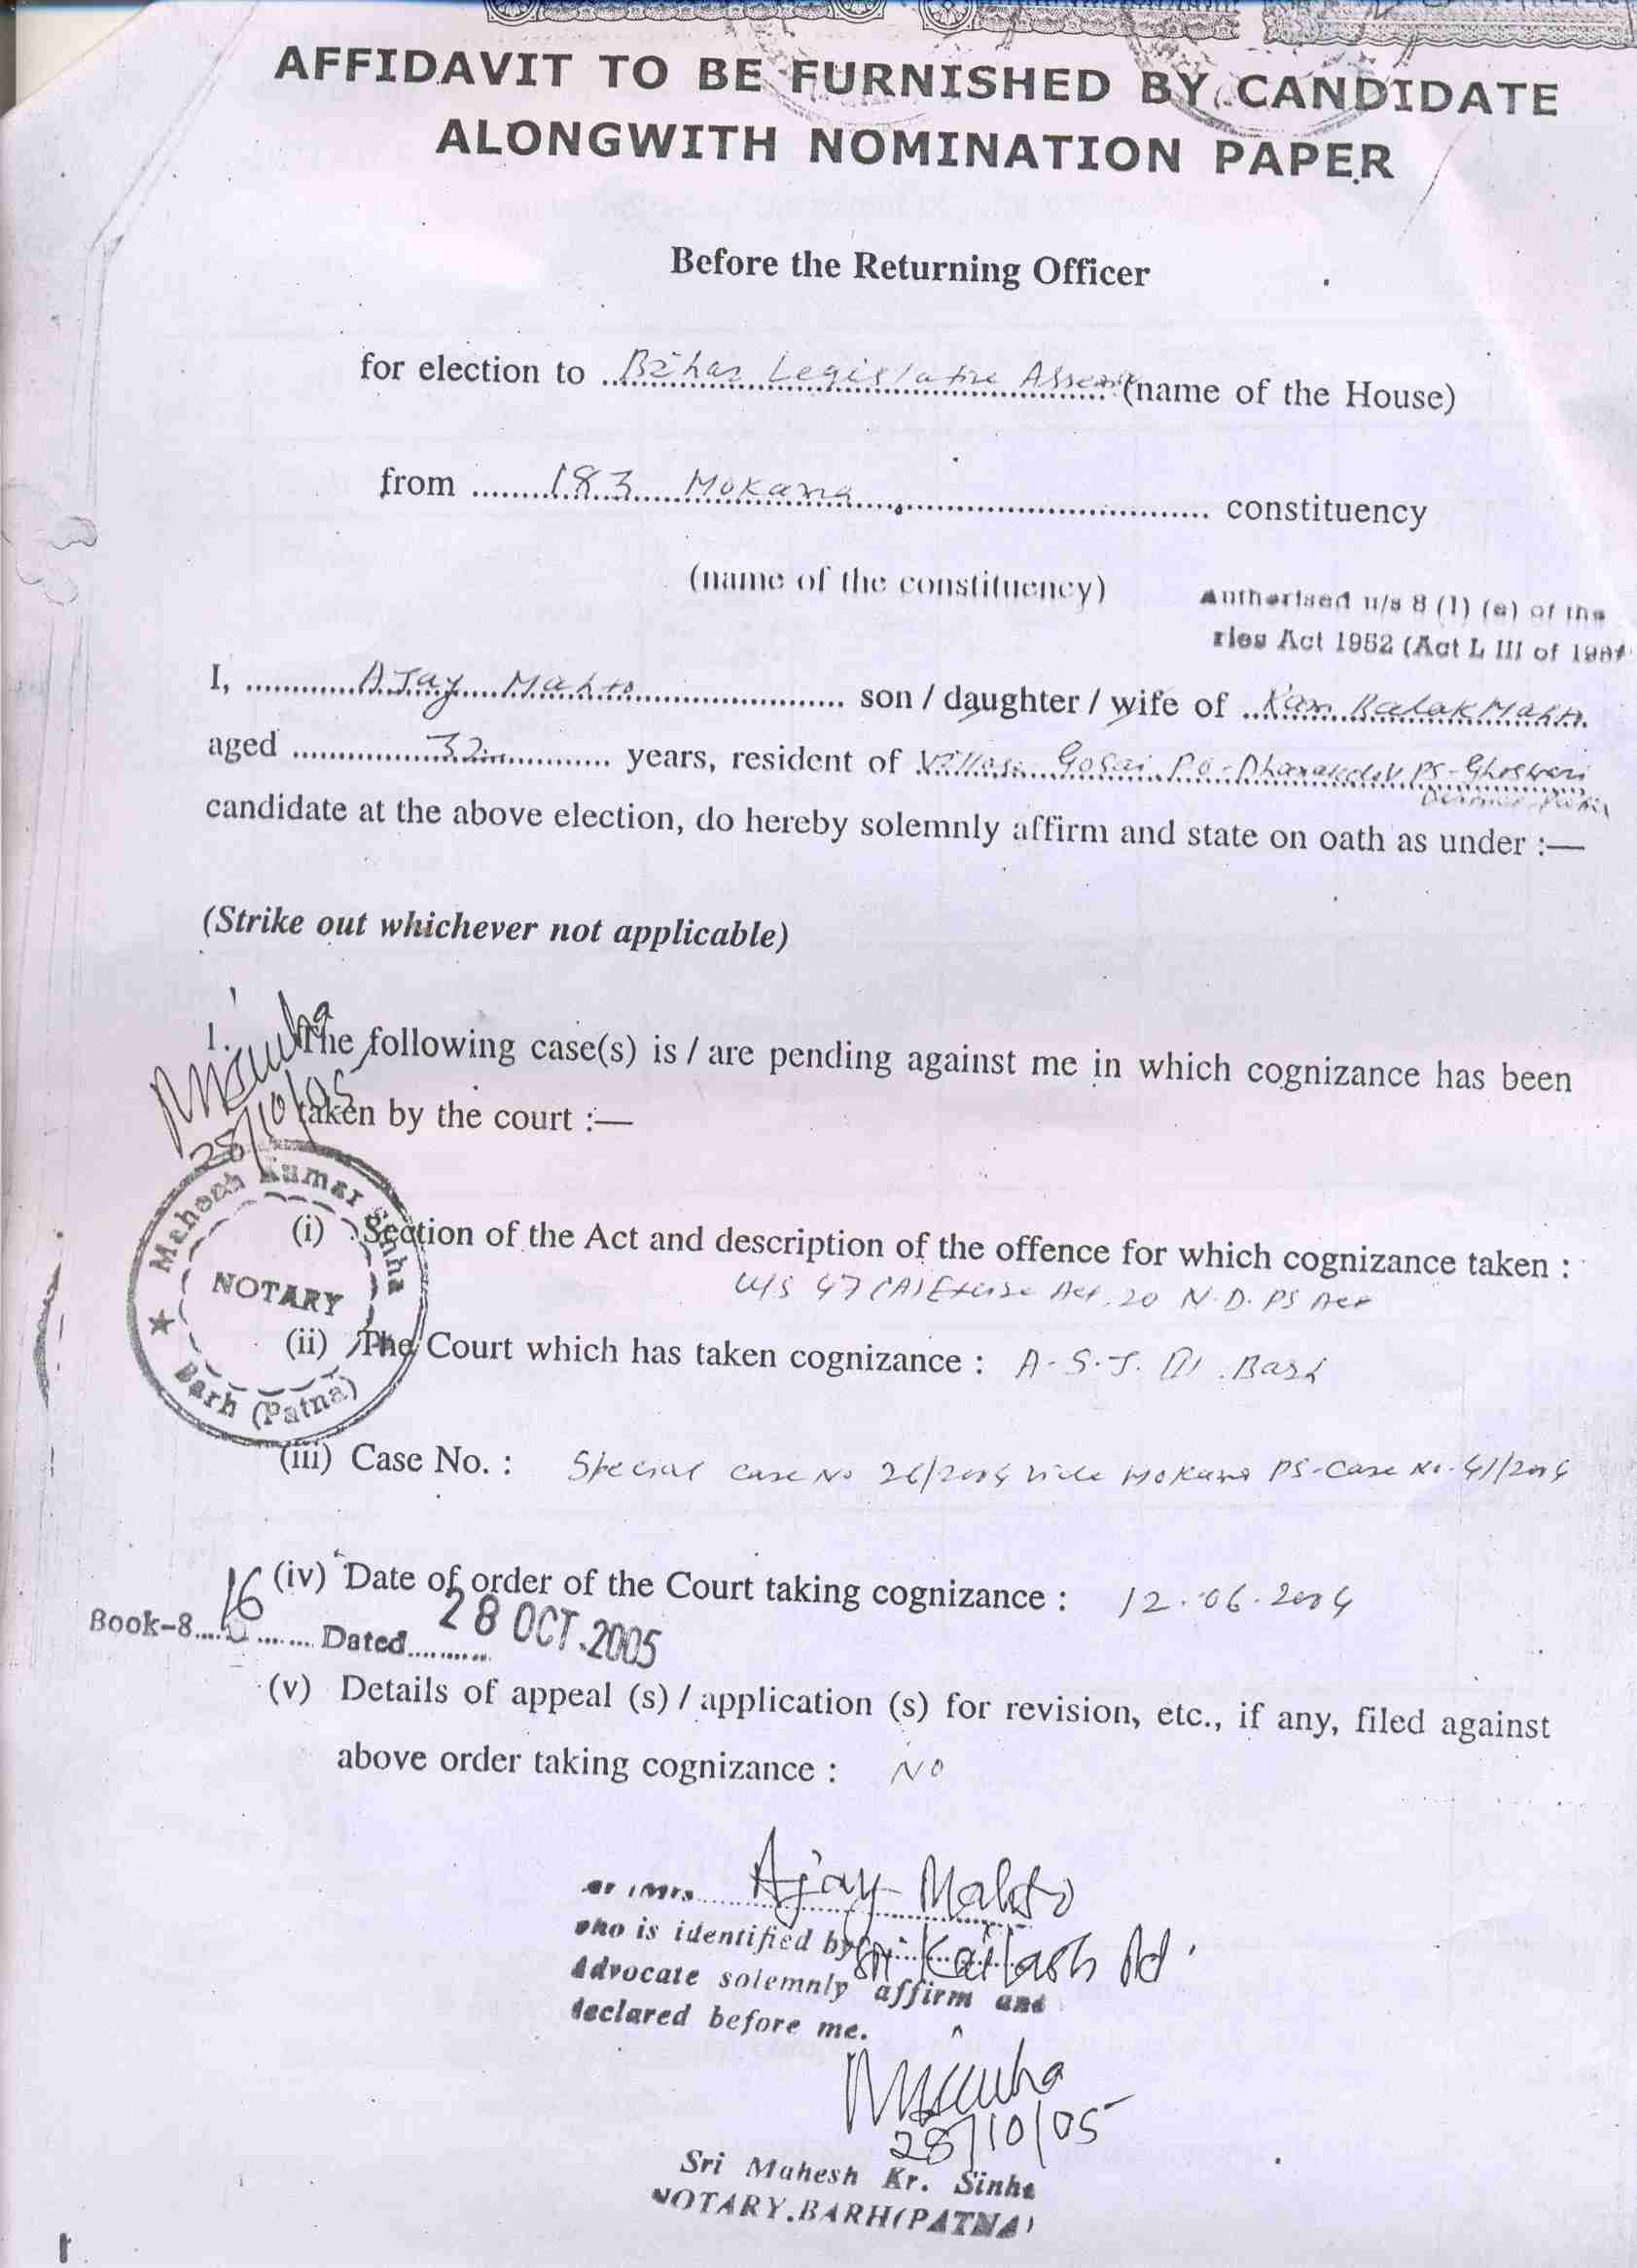 AFFIDAVIT TO BE FURNISHED BY CANDIDATE
ALONGWITH NOMINATION PAPER
Before the Returning Officer
for election to Bihar Legislative (name of the House)
from 183 Mokama constituency
(name of the constituency)
Authorised u/s 8 (1) (e) of the
ries Act 1952 (Act L III of
I, Ajay Mahto son / daughter / wife of Ram Balak Mahto
aged 32 years, resident of Village Gosai Po- PS- Ghoswari
candidate at the above election, do hereby solemnly affirm and state on oath as under :—
(Strike out whichever not applicable)
1. The following case(s) is / are pending against me in which cognizance has been
taken by the court :—
28/10/05
Mahesh Kumar Sinha
NOTARY
Barh (Patna)
(i) Section of the Act and description of the offence for which cognizance taken :
U/S 47 (A) Excise Act, 20 N.D.PS Act
(ii) The Court which has taken cognizance : A.S.J. III. Barh
(iii) Case No. : Special case No 26/2004 vide Mokama PS-Case No. 41/2004
(iv) Date of order of the Court taking cognizance : 12.06.2004
Book-8 16 Dated 28 OCT. 2005
(v) Details of appeal (s) / application (s) for revision, etc., if any, filed against
above order taking cognizance : NO
Ajay Mahto
who is identified by Sri Kailash
Advocate solemnly affirm and
declared before me.
28/10/05
Sri Mahesh Kr. Sinha
NOTARY.BARH(PATNA)